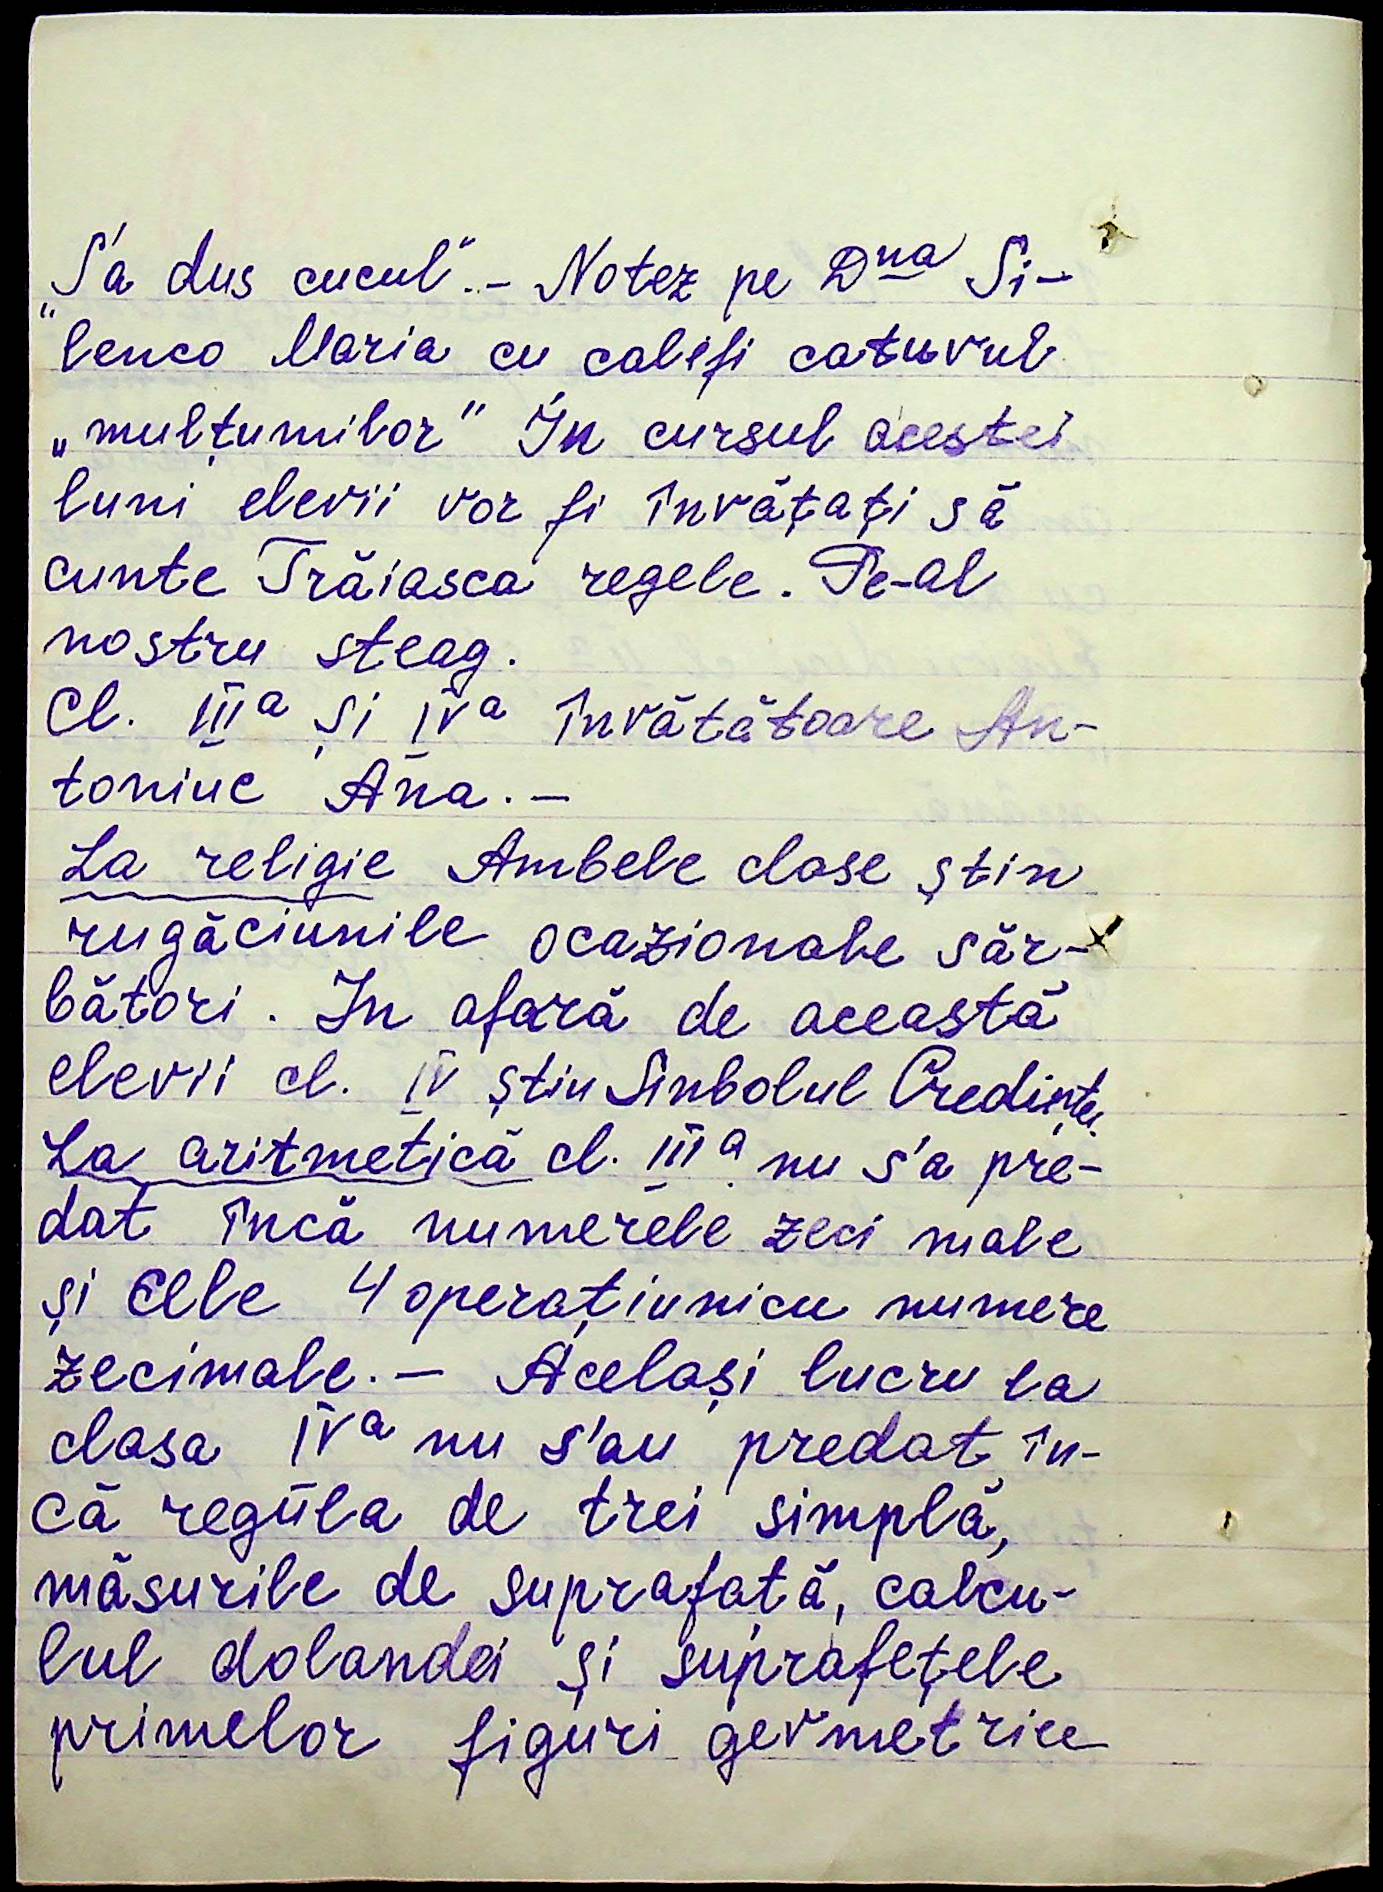 „S'a dus cucul".- Notez pe Dna Si-
lenco Maria cu califi catuvul
„mulțumilor" În cursul acestei
luni elevii vor fi învățați să
cunte Trăiasca regele. Pe-al
nostru steag.
Cl. IIIa și IVa învătătoare An-
toniuc Ana.-
La religie Ambele clase știn
rugăciunile ocazionale săr-
bători. In afară de această
elevii cl. IV știu Sinbolul Credinței
La aritmetică cl. IIIa nu s'a pre-
dat încă numerele zeci male
și cele 4 operațiunicu numere
zecimale.- Același lucru la
clasa IVa nu s'au predat în-
că regula de trei simplă,
măsurile de suprafată, calcu-
lul dolandei și suprafețele
primelor figuri gevmetrice